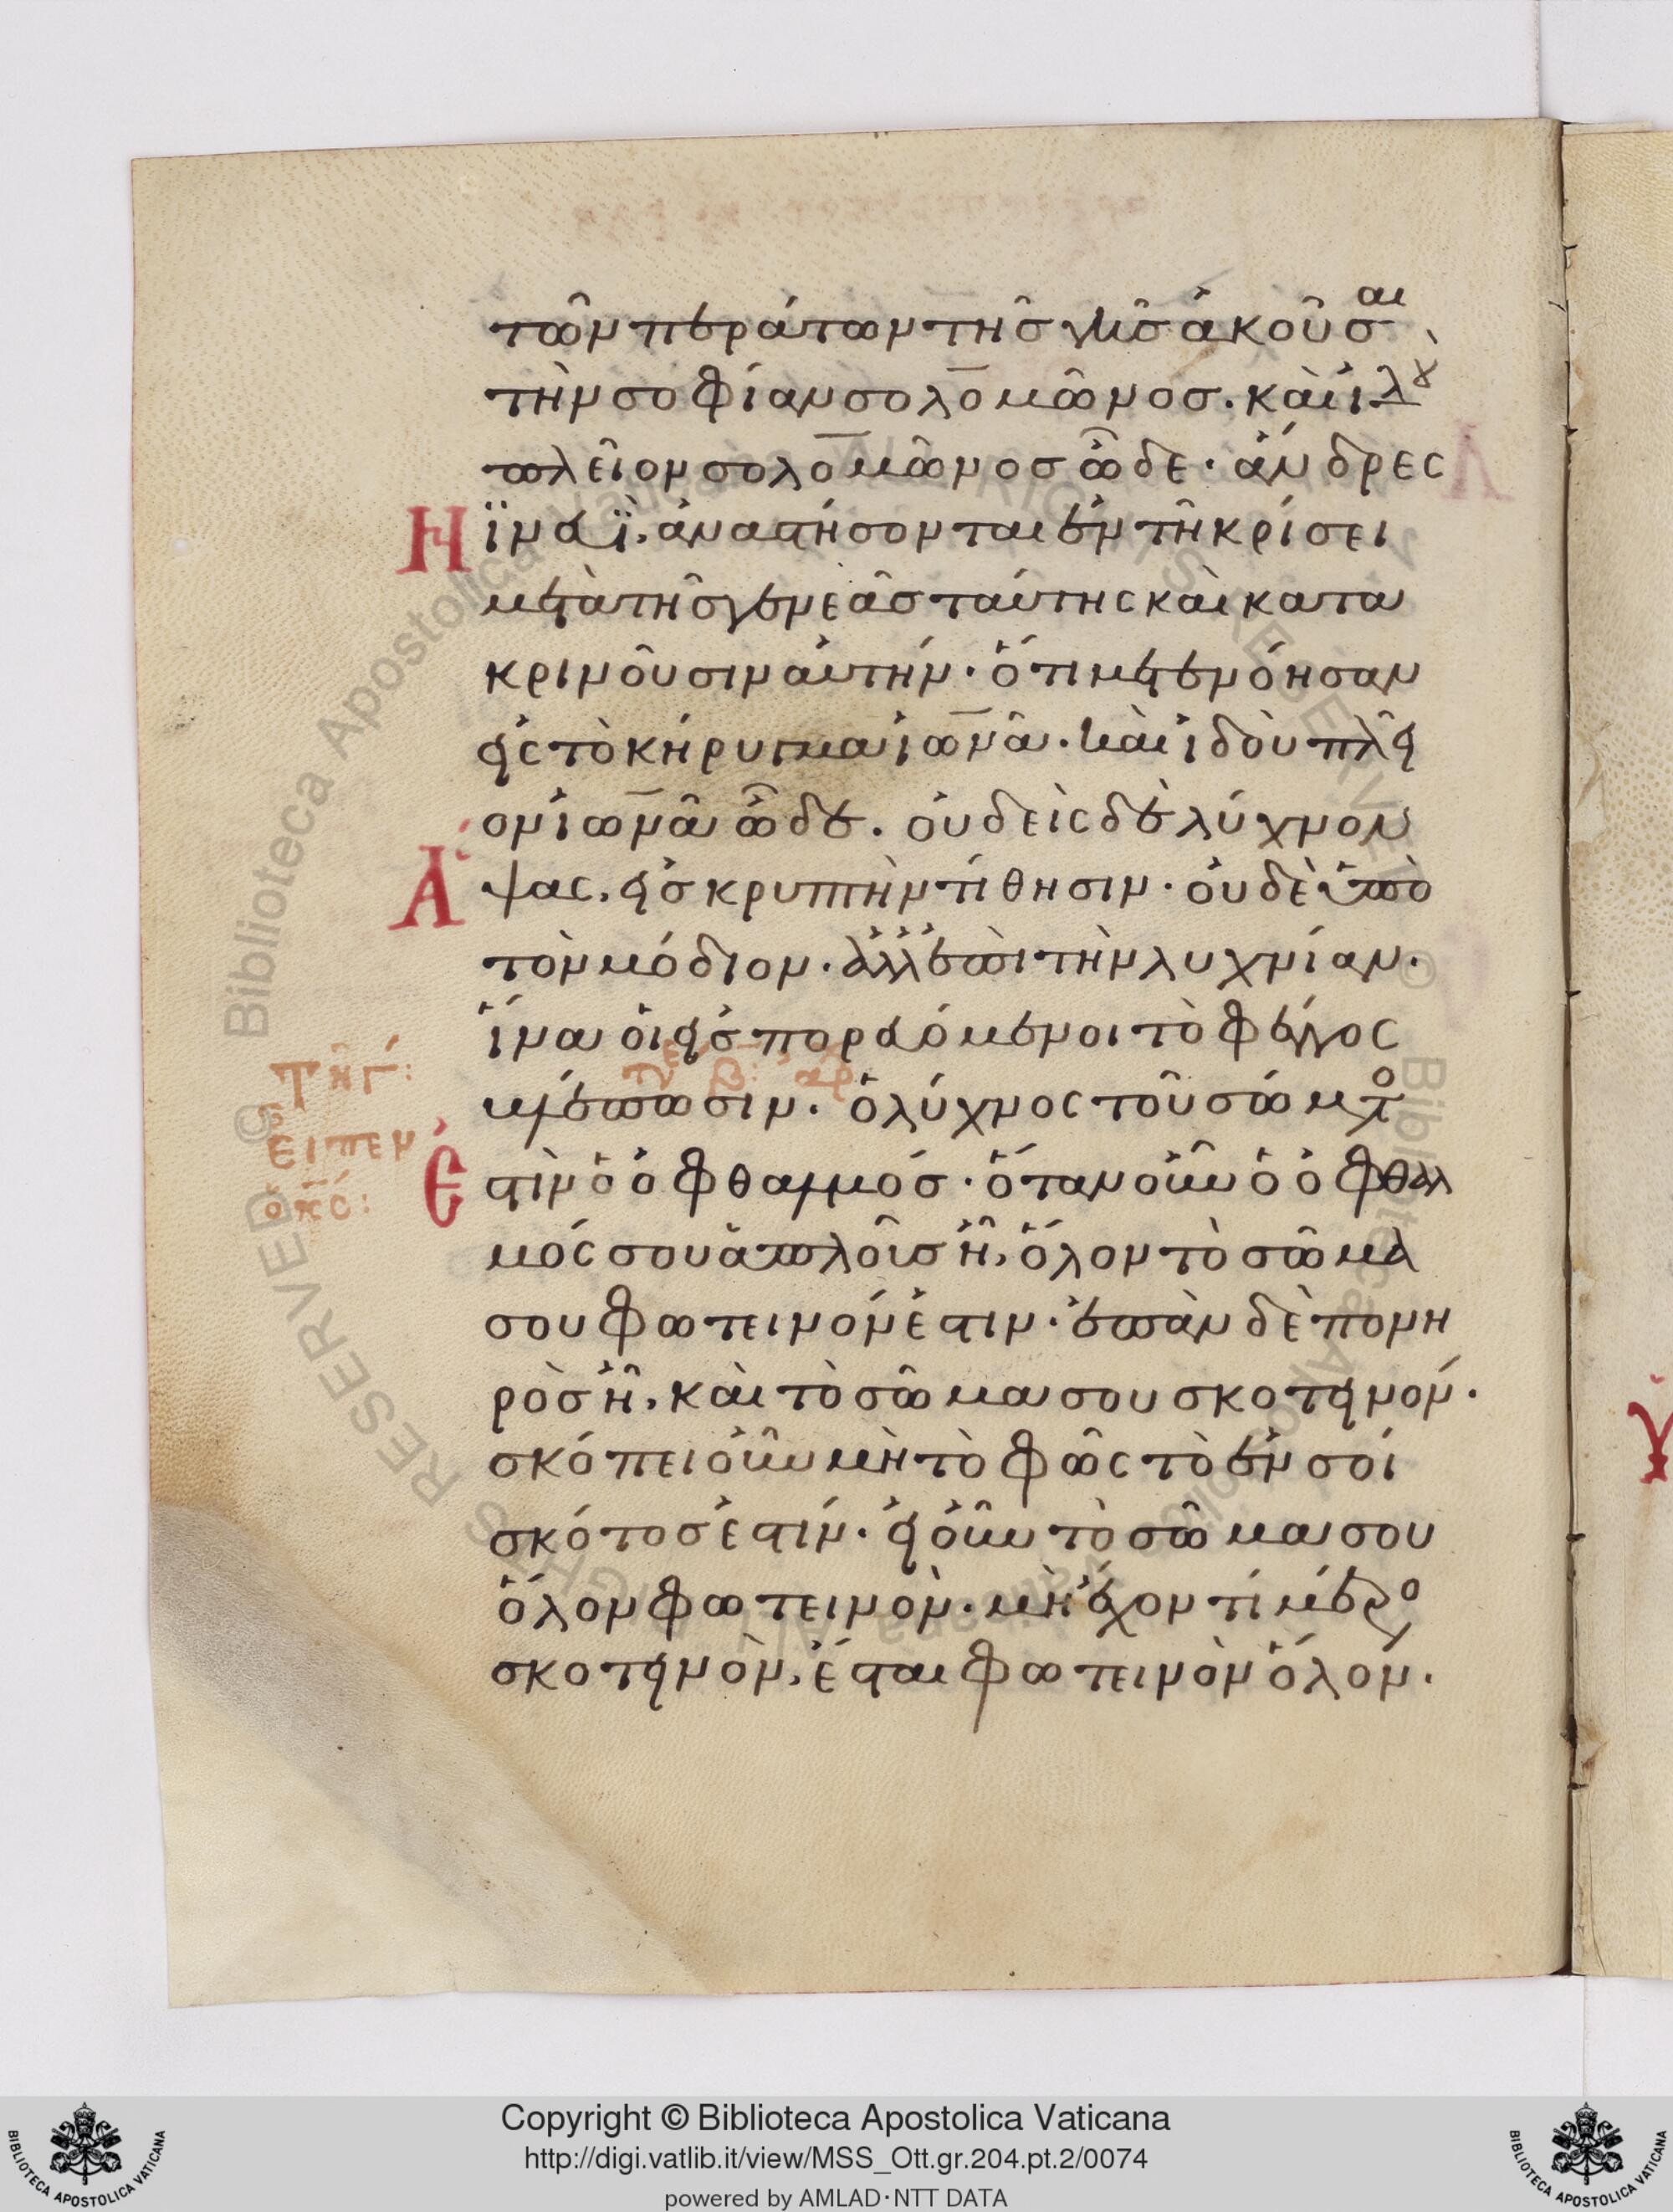 τῶν περάτων τῆς γῆς ἀκοῦσαι
τὴν σοφίαν σολομῶνος. καὶ ἰδοὺ
πλεῖον σολομῶνος ὧδε· ἄνδρες
νϊνευῒ, ἀναστήσονται ἐν τῆ κρίσει
μετὰ τῆς γενεᾶς ταύτης καὶ κατα
κρινοῦσιν αὐτήν· ὅτι μετενόησαν
εἰς τὸ κήρυγμα ἰωνᾶ. καὶ ἰδοὺ πλεῖ
ον ἰωνᾶ ὧδε. οὐδεὶς δὲ λύχνον
Ἅψας, εἰς κρυπτὴν τίθησιν· οὐδὲ ὑπὸ
τὸν μόδιον· ἀλλ' ἐπὶ τὴν λυχνίαν.
ἵνα οἱ εἰσπορευόμενοι τὸ φέγγος
βλέπωσιν. ὁ λύχνος τοῦ σώματός
Ἐστὶν ὁ ὀφθαλμός· ὅταν οὖν ὁ ὀφθαλ
μός σου ἁπλοῦς ῆ, ὅλον τὸ σῶμα
σου φωτεινόν ἐστιν· ἐπὰν δὲ πονη
ρὸς ῆ, καὶ τὸ σῶμα σου σκοτεινόν.
σκόπει οὖν μὴ τὸ φῶς τὸ ἐν σοί
σκότος ἐστίν. εἰ οὖν τὸ σῶμα σου
ὅλον φωτεινὸν. μὴ ἔχον τί μέρο
σκοτεινὸν, ἔσται φωτεινὸν ὅλον.
εἶπεν
ὁ κ̅ς̅:
Copyright © Biblioteca Apostolica Vaticana
http://digi.vatlib.it/view/MSS_Ott.gr.204.pt.2/0074
powered by AMLAD·NTT DATA
BIBLIOTECA APOSTOLICA VATICANA
BIBLIOTECA APOSTOLICA VATICANA